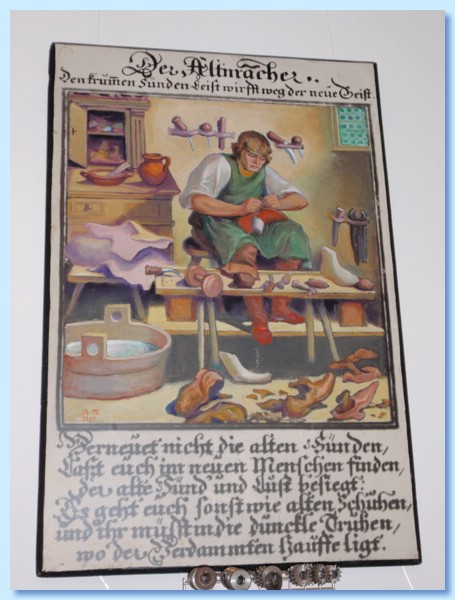 Der Altmacher..
Den krum̄en Sünden-Leist wirfft weg der neue Geist.
Verneuet nicht die alten Sünden,
Laszt euch im neuen Menschen finden,
der alte Sünd und Lust besiegt:
Es geht euch sonst wie alten Schuhen,
und ihr müsst in die dunckle Truhen,
wo der Verdammten Hauffe ligt.